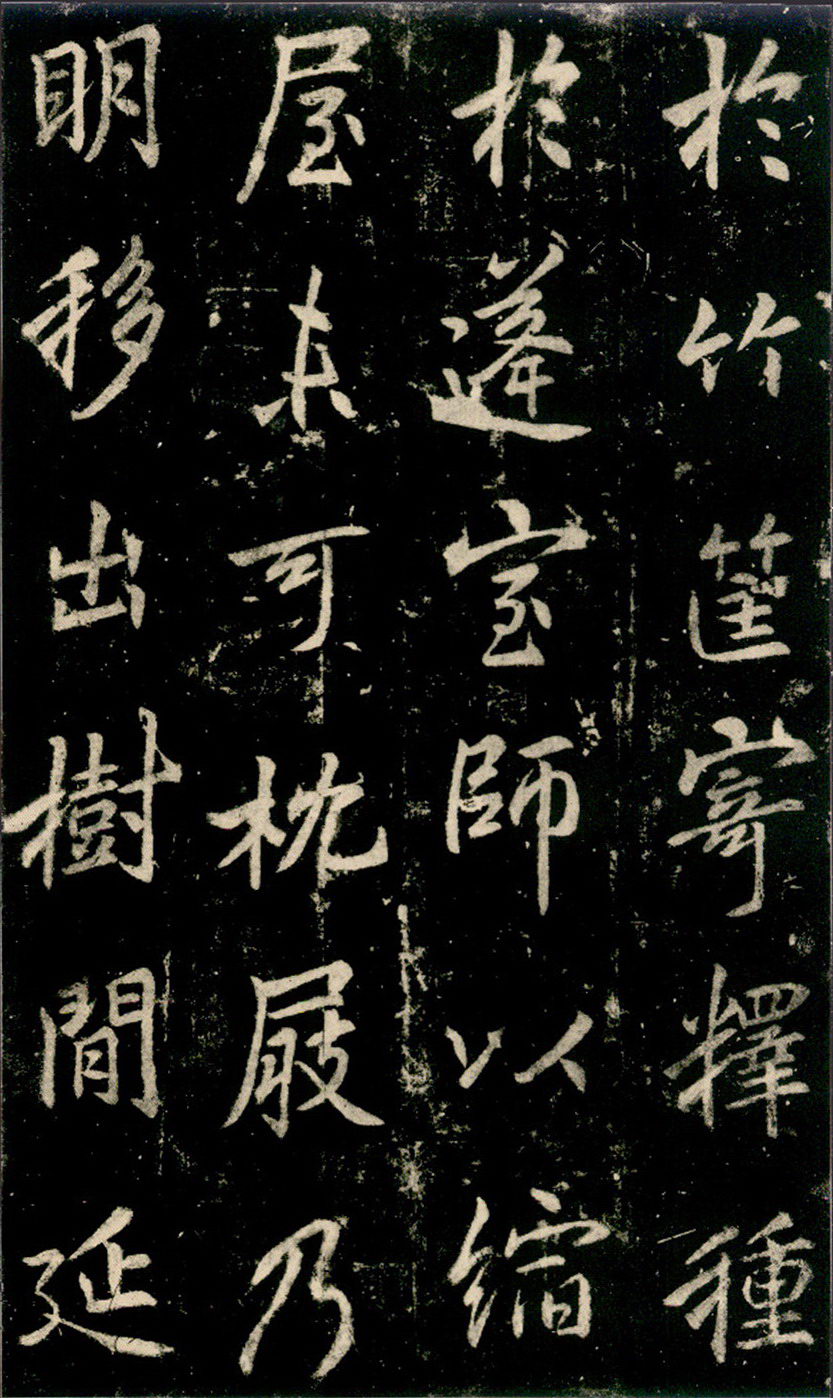 於竹筐寄釋種
於蓬室師以縮
屋未可枕屐乃
明移出樹間延